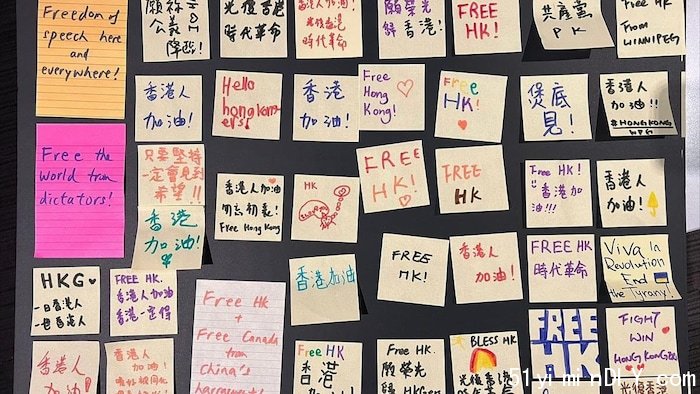 Freedom of
speech here
and
everywhere!
公義
降臨!
光復香港
時代革命
香港人加油!
光復香港
時代革命
願榮光
歸香港!
FREE
HK!
共產黨
PK
Free HK
from
WINNIPEG
香港人
加油!
Hello
香港
加油!
Free
Hong
Kong!
Free
HK!
煲底
見!
香港人
加油!!
#HONGKONG
WPG
Free the
world from
dictators!
只要堅持
一定會見到
希望!!
香港
加油!
香港人加油
勿忘初衷!
Free Hong Kong
HK
FREE
HK!
FREE
HK
Free HK!
香港加
油!!!
香港人
加油!
HKG
一日香港人
一世香港人
FREE HK.
香港人加油
香港一定得
Free HK
+
Free Canada
from
China's
harrassment!
香港加油
FREE
HK!
香港人
加油!
FREE HK
時代革命
Viva la
Revolution
End
the Tyranny!
香港人
加油!
香港人
加油!
Free HK
香港
Free HK.
願榮光
歸HKGer
BLESS HK
光復香港
FREE
HK
FIGHT
WIN
HONGKONGER
光復香港